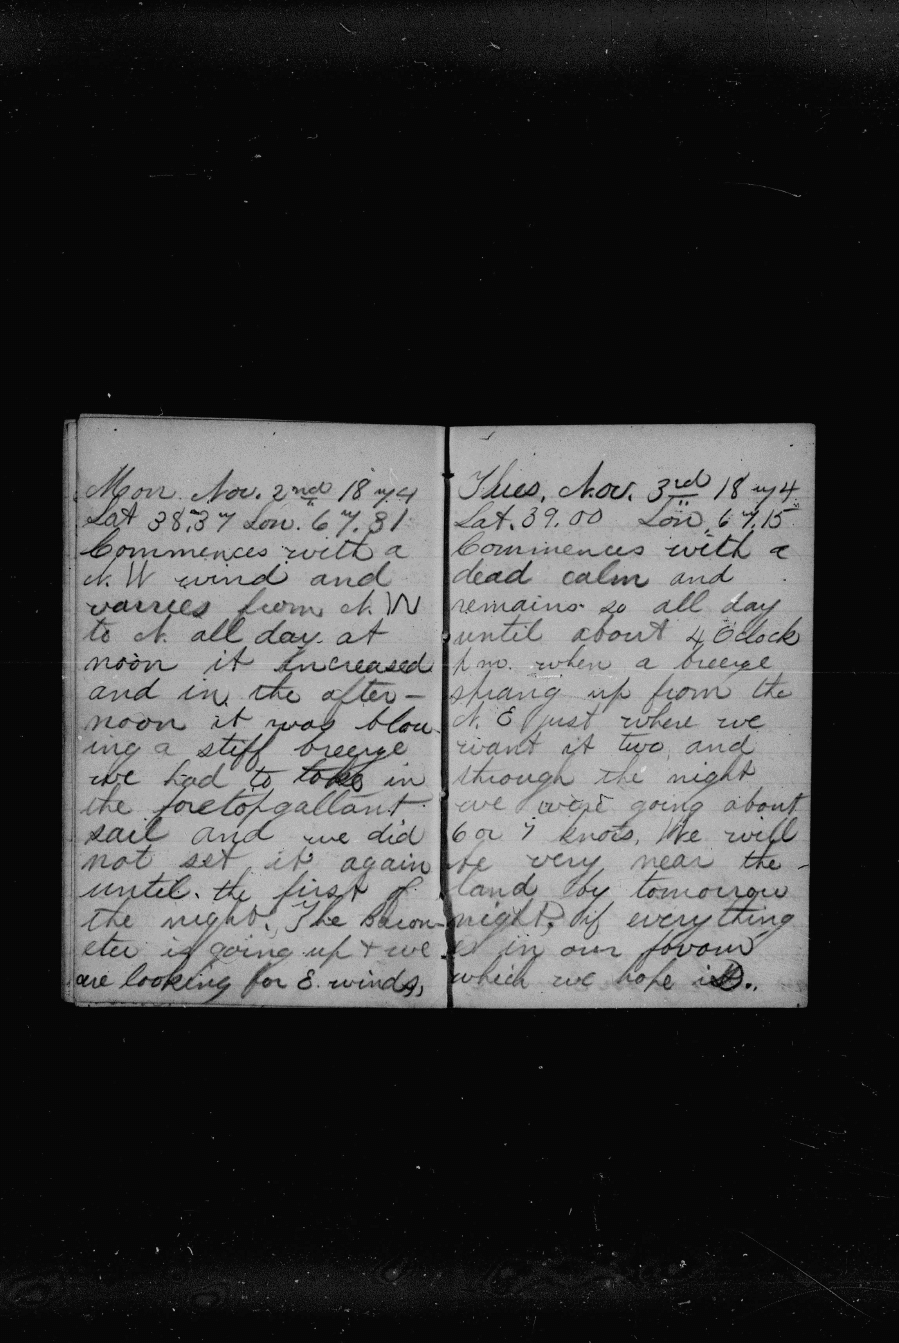 Mon. Nov. 2nd 1874
Lat 38.37 Lon. 67.31
Commences with a
N. W wind and
varries from N. W
to N. all day. at
noon it increased
and in the after-
noon it was blow-
ing a stiff breeze
we had to take in
the foretopgallant
sail and we did
not set it again
until the first of
the night. The barom-
eter is going up + we
are looking for E. winds,
Tues. Nov. 3rd 1874
Lat. 39.00 Lon. 67.15
Commences with a
dead calm and
remains so all day
until about 4 Oclock
p.m. when a breeze
sprang up from the
N. E just where we
want it two, and
through the night
we were going about
6 or 7 knots. We will
be very near the
land by tomorrow
night, if every thing
is in our favour
which we hope is.